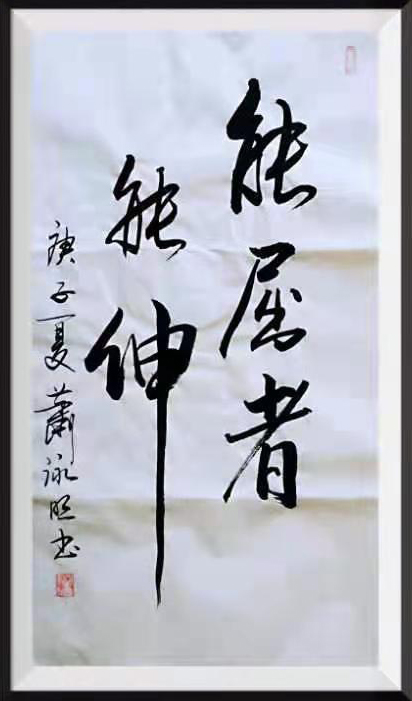 能屈者
能伸
庚子夏萧泳照书